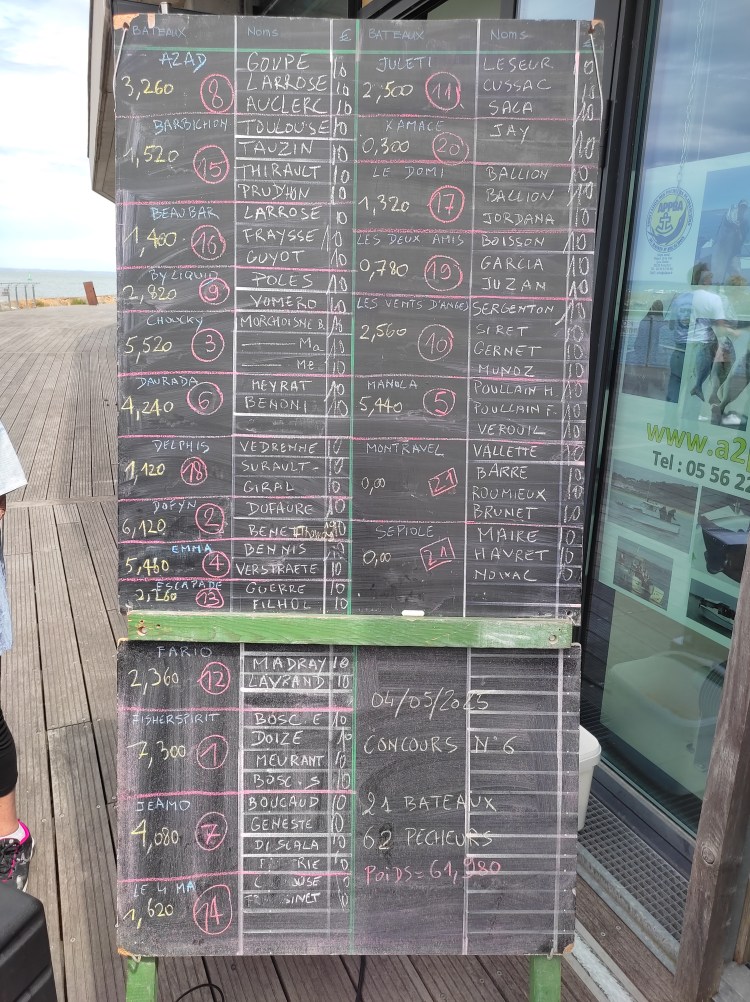 BATEAUX NOMS £ BATEAUX NOMS £
AZAD
3,260 8
GOUPE 10
LARROSE 10
AUCLERC 10
BARBICHON
1,520 15
TOULOUSE 10
TAUZIN 10
THIRAULT 10
PRUDHON 10
BEAUBAR
1,400 16
LARROSE 10
FRAYSSE 10
GUYOT 10
BY LIQUID
2,820 9
POLES 10
YOMERO 10
CHOUCKY
5,520 3
MORCHOISNE B. 10
Ma 10
Me 10
DAURADA
4,240 6
HEYRAT 10
BENONI 10
DELPHIS
1,120 18
VEDRENNE 10
SURAULT- 10
GIRAL 10
DOFYN
6,120 2
DUFAURE 10
BENET 10
EMMA
5,460 4
BENNIS 10
VERSTRAETE 10
ESCAPADE
2,160 13
GUERRE 10
FILHOL 10
JULETI
2,500 11
LESEUR 10
CUSSAC 10
SALA 10
XAMACE
0,300 20
JAY 10
LE DOMI
1,320 17
BALLION 10
BALLION 10
JORDANA 10
LES DEUX AMIS
0,780 19
BOISSON 10
GARCIA 10
JUZAN 10
LES VENTS D'ANGES
2,560 10
SERGENTON 10
SIRET 10
GERNET 10
MUNOZ 10
MANOLA
5,440 5
POULLAIN H. 10
POULLAIN F. 10
VEROUIL 10
MONTRAVEL
0,00 21
VALLETTE 10
BARRE 10
ROUMIEUX 10
BRUNET 10
SEPIOLE
0,00 21
MAIRE 10
HAVRET 10
NOIXAC 10
FARIO
2,360 12
MADRAY 10
LAYRAND 10
FISHERSPIRIT
7,300 1
BOSC.E 10
DOIZE 10
MEURANT 10
BOSC.S 10
JEAMO
4,080 7
BOUCAUD 10
GENESTE 10
DI SCALA 10
LE 4 MA
1,620 14
04/05/2025
CONCOURS N°6
21 BATEAUX
62 PECHEURS
POIDS = 61,980
APPBA
www.a2p
Tel : 05 56 22